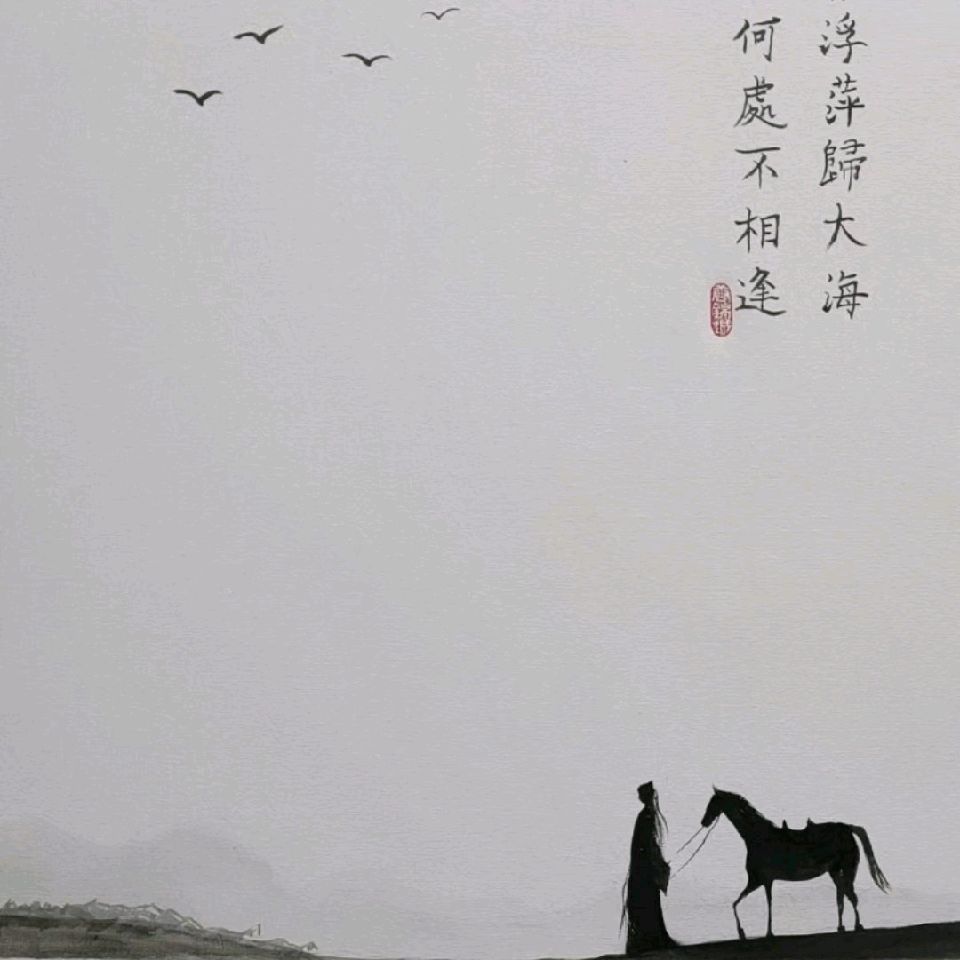 浮萍歸大海
何處不相逢